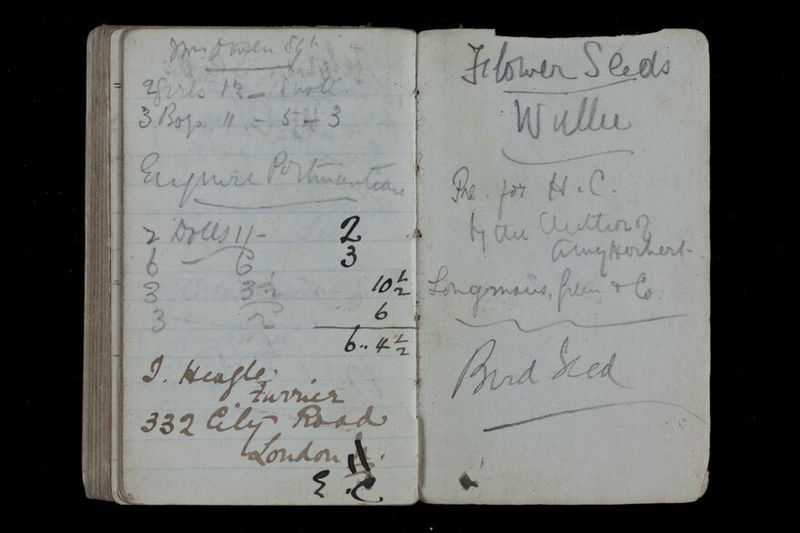 3 Boys 11 - 5 - 3
Enquire Portmanteau
2 Dolls 11 - 2
6 6 3
3 3½ 10½
3 2 6
6..4½
J. Heagle
Furrier
332 City Road
London
E.C
Flower Seeds
Wullie
Pre. for H.C.
by the Author of
Amy Herbert.
Longmans, Green & Co.
Bird Seed